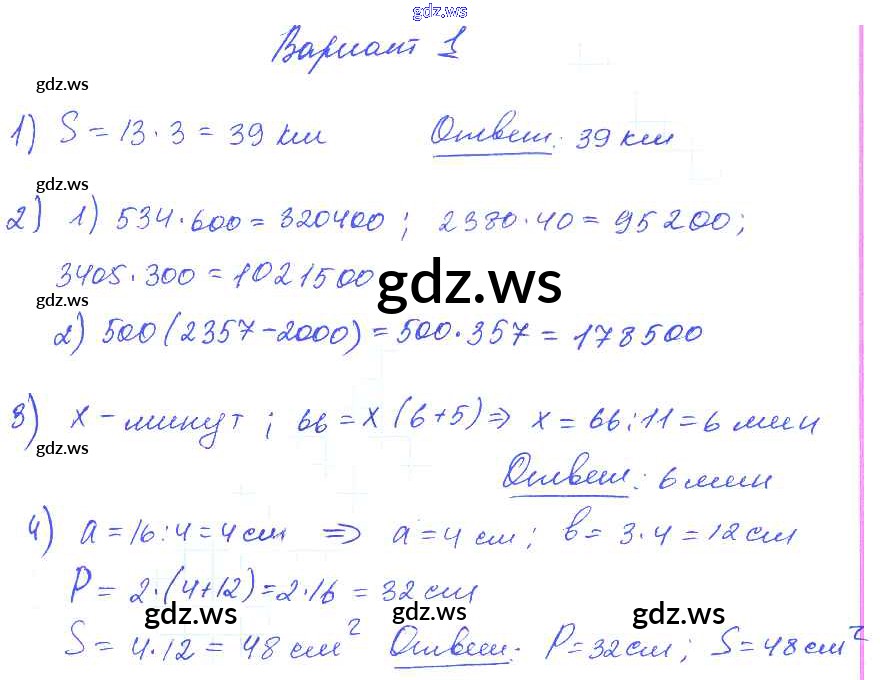 gdz.ws
Вариант 1
gdz.ws
1) S = 13 · 3 = 39 км Ответ: 39 км
gdz.ws
2) 1) 534 · 600 = 320400 ; 2380 · 40 = 95200;
3405 · 300 = 1021500
gdz.ws
gdz.ws
2) 500 (2357 - 2000) = 500 · 357 = 178500
3) x - минут ; 66 = x (6+5) ⇒ x = 66 : 11 = 6 мин
gdz.ws
Ответ: 6 мин
4) a = 16 : 4 = 4 см ⇒ a = 4 см ; b = 3 · 4 = 12 см
P = 2 · (4+12) = 2 · 16 = 32 см
gdz.ws gdz.ws gdz.ws
S = 4 · 12 = 48 см² Ответ: P = 32 см ; S = 48 см²